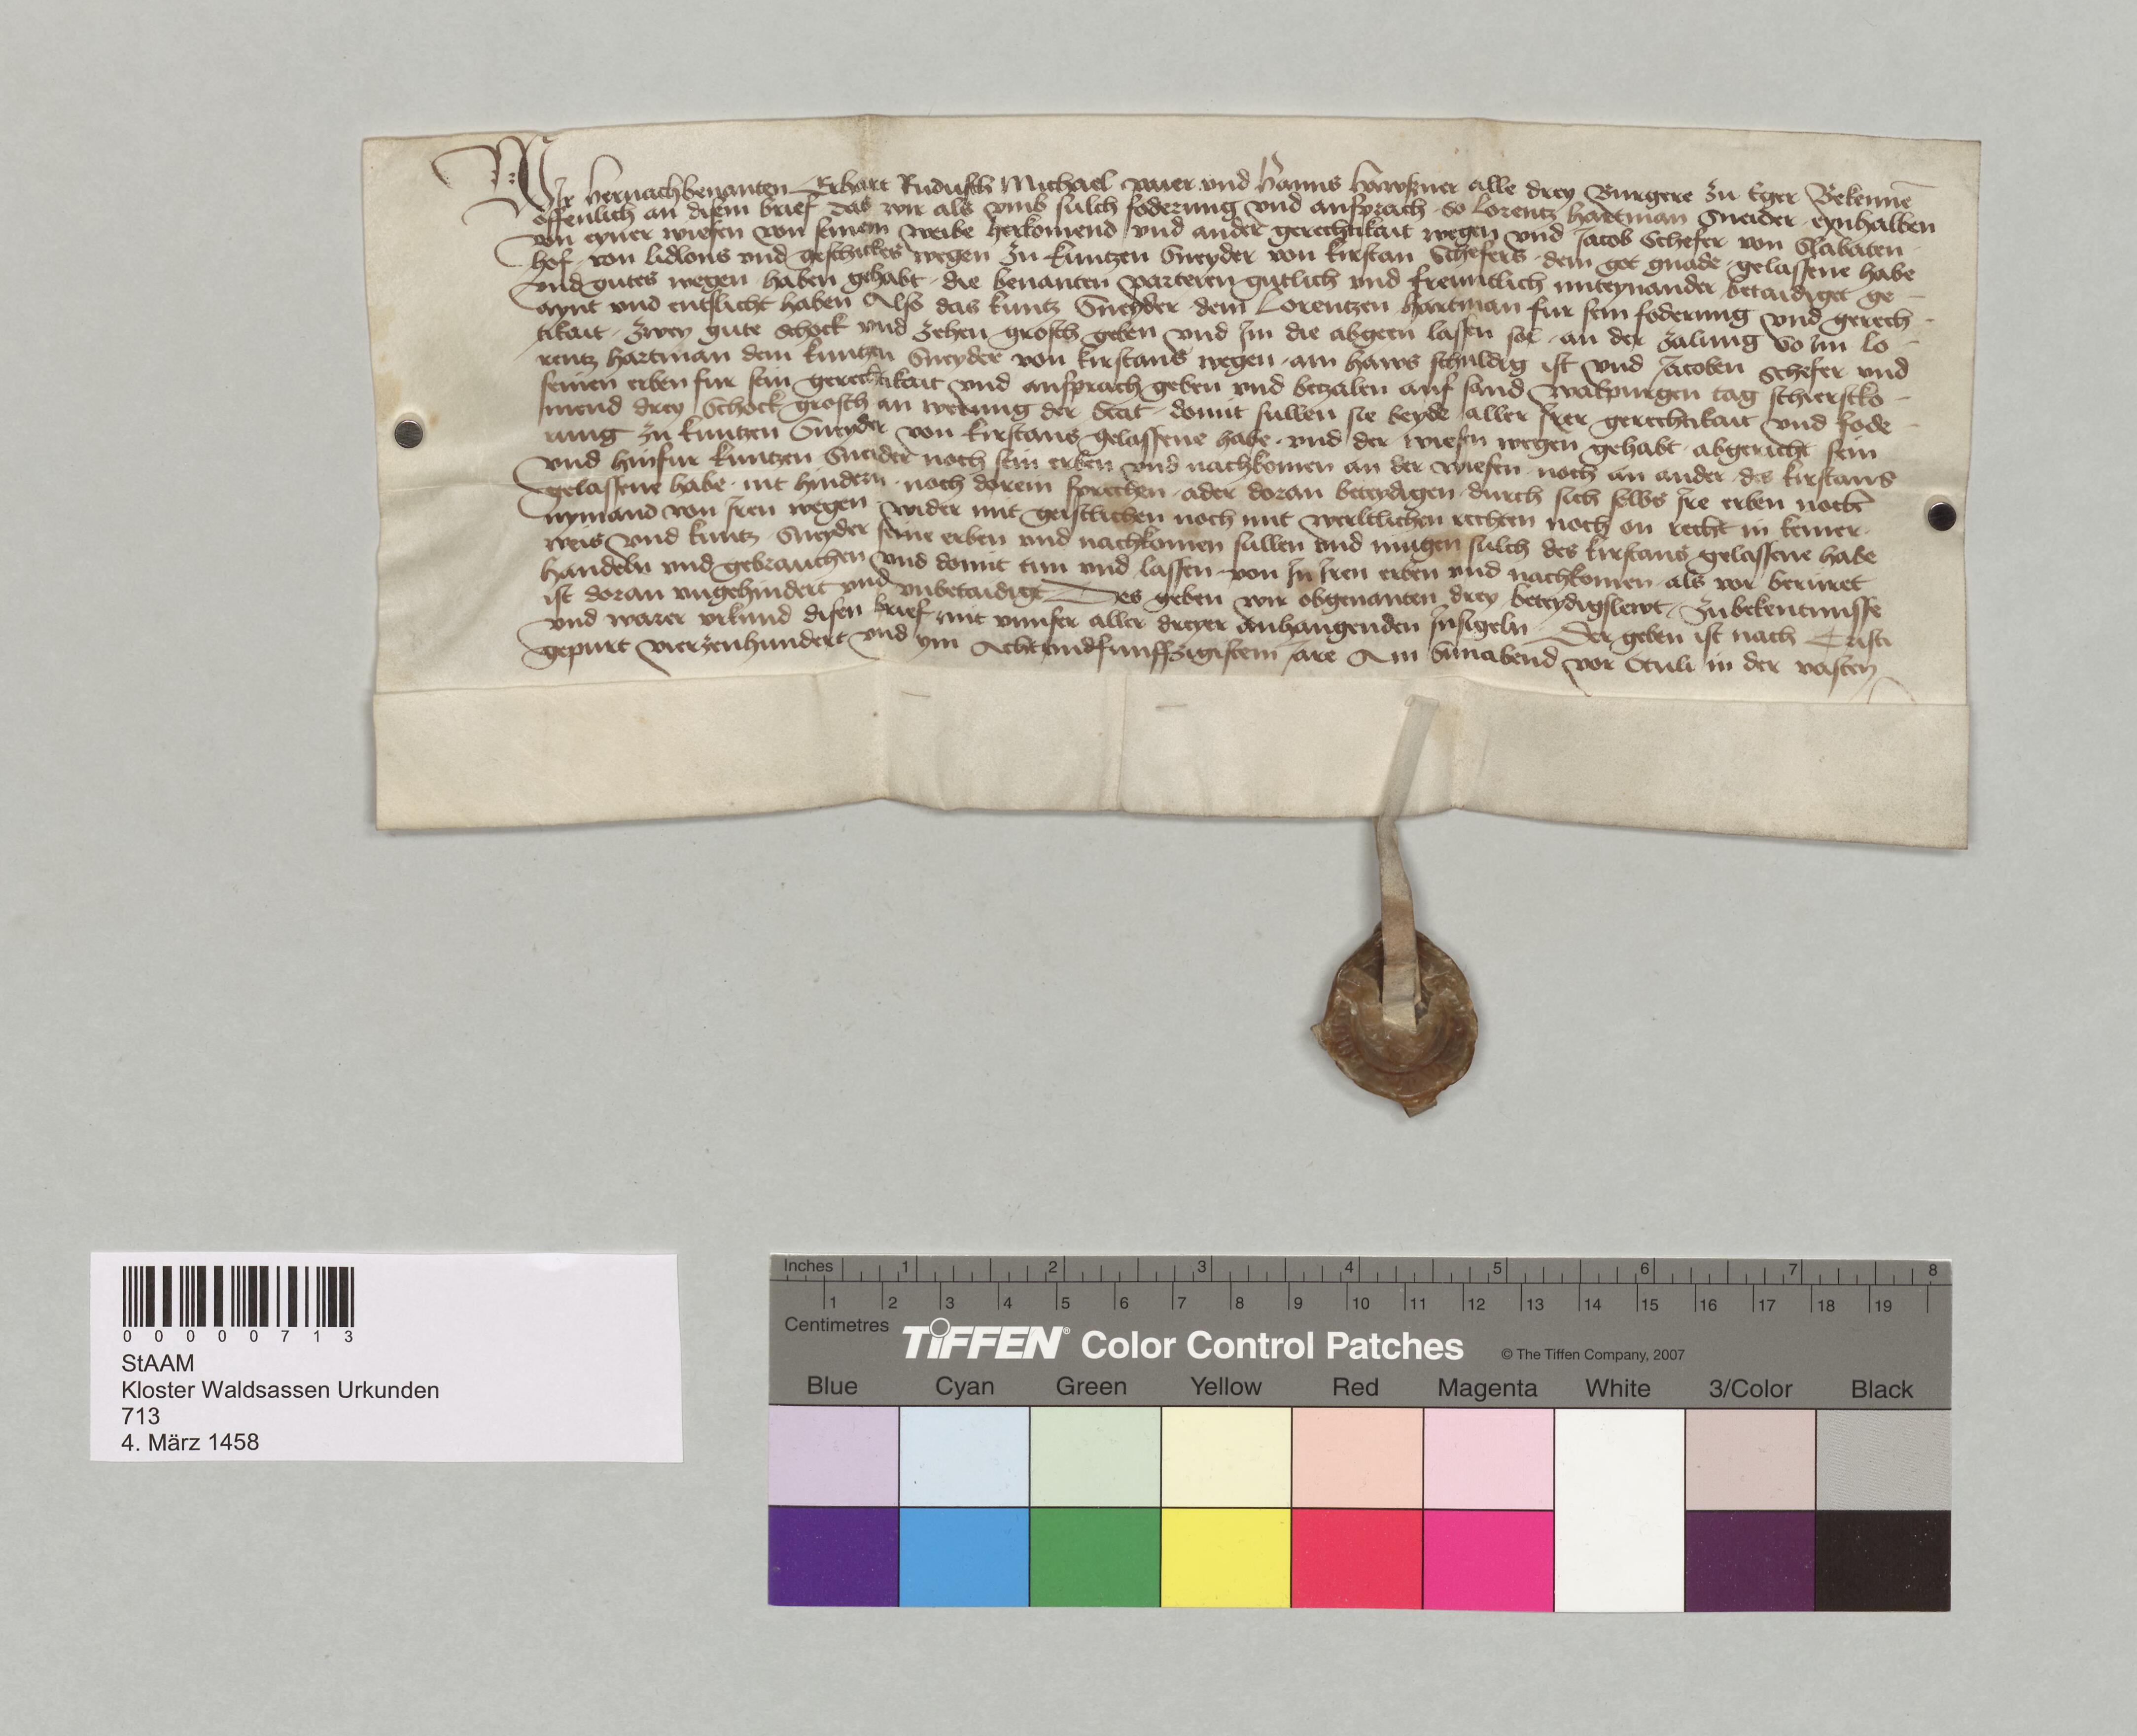 Wir hernachbenanten Erhart Rudusch Michael und Hanns alle drey Burgere zu Eger Bekenne
offenlich an disem brief das wir als umb sulch foderung und ansprach so Lorentz Hartman Sneider eynhalben
von eyner wiesen von seinem weibe herkomend und ander gerechtikait wegen und Jacob Schefer von Slabaten
hof von lidlons und geschickes wegen zu Kuntzen Sneyder von Kirstan Schefers dem got gnade gelassene habe
und gutes wegen haben gehabt die benanten parteyen gutlich und freuntlich miteynander betaidiget ge-
aynt und entslicht haben Also das Kuntz Sneyder dem Lorentzen Hartman fur sein foderung und gerech-
tikait zwey gute schock und zehen grosch geben und Im die abgeen lassen sol an der zalung so Im Lo-
rentz Hartman dem Kuntzen Sneyder von Kirstans wegen am haws schuldig ist und Jacoben Schefer und
seinen erben fur sein gerechtikait und ansprach geben und betzalen auf sand walpurgen tag schierstko-
mend drey Schock grosch an werung der Stat domit sullen sie beyde aller Irer gerechtikait und fode-
rung zu Kuntzen Sneyder von Kirstans gelassene habe und der wiesen wegen gehabt abgericht sein
und hinfur Kuntzen Sneider noch sein erben und nachkomen an der wiesen noch an ander des Kirstans
gelassene habe nit hindern noch dorein sprechen ader doran beteydigen durch sich selbs Ire erben noch
nymand von Iren wegen wider mit geistlichen noch mit werltlichen rechten noch on recht in keiner
weis und Kuntz Sneyder seine erben und nachkomen sullen und mugen sulch des Kirstans gelassene habe
handeln und gebrauchen und domit tun und lassen von In Iren erben und nachkomen als vor berurt
ist doran ungehindert und unbetaidigt Des geben wir obgenanten drey beteydigslewt zu bekentnisse
und warer urkund disen brief mit unnser aller dreyer anhangenden Insigeln Der geben ist nach Cristi
gepurt vierzenhundert und ym Achtundfunffzigistem Jare Am Sunabend vor Oculi in der vasten
0 0 0 0 0 7 1 3
StAAM
Kloster Waldsassen Urkunden
713
4. März 1458
Inches 1 2 3 4 5 6 7 8
1 2 3 4 5 6 7 8 9 10 11 12 13 14 15 16 17 18 19
Centimetres
TIFFEN® Color Control Patches © The Tiffen Company, 2007
Blue Cyan Green Yellow Red Magenta White 3/Color Black